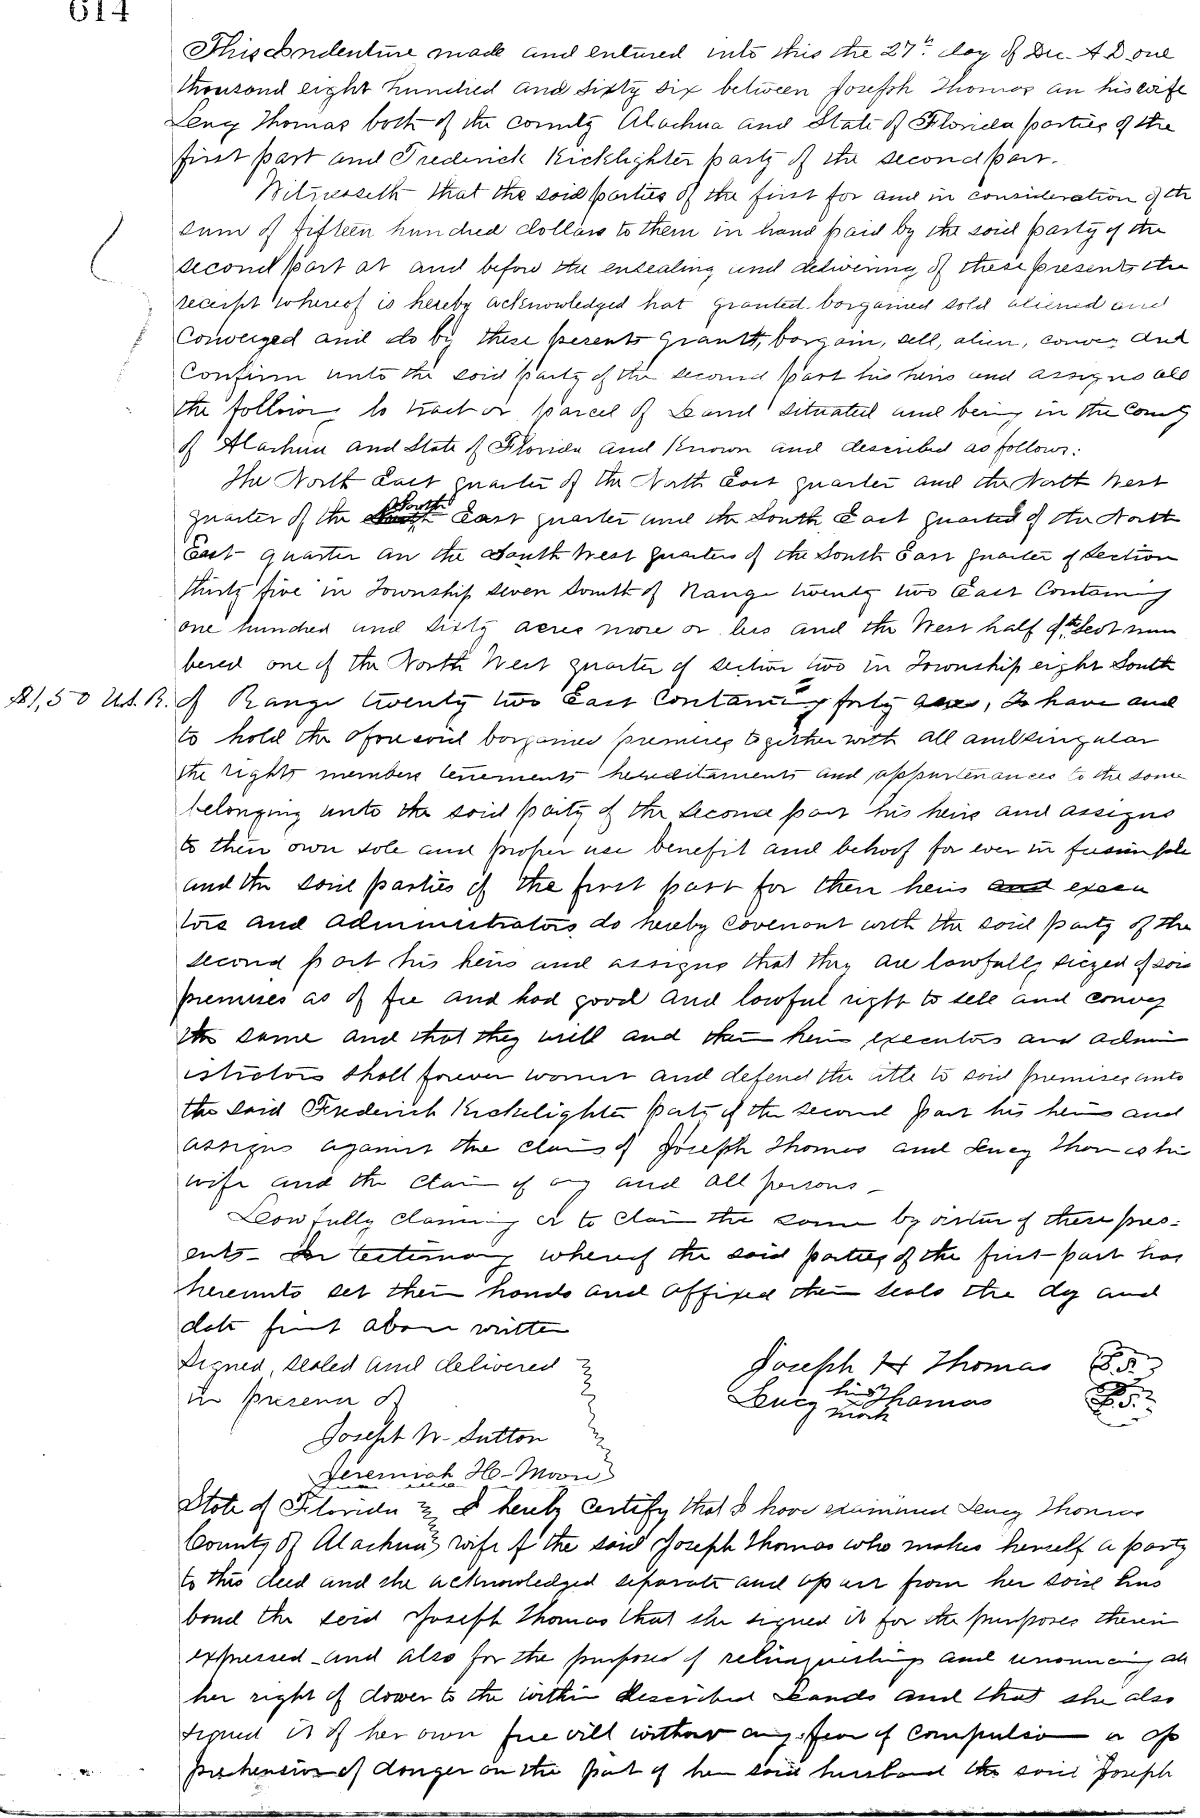 614
This Indenture made and entured into this the 27th day of Dec. A D one
thousand eight hundred and sixty six between Joseph Thomas an his wife
Lucy Thomas both of the county Alachua and State of Florida parties of the
first part and Frederick Kicklighter party of the second part.
Witnesseth that the said parties of the first for and in consideration of the
sum of fifteen hundred dollars to them in hand paid by the said party of the
second part at and before the ensealing and delivering of these presents the
receipt whereof is hereby acknowledged hat granted bargained sold aliened and
Conveyed and do by these presents grant, bargain, sell, alien, convey and
Confirm unto the said party of the second part his heirs and assigns all
the following to tract or parcel of Land situated and being in the County
of Alachua and State of Florida and Known and described as follows:
The North East quarter of the North East quarter and the North West
quarter of the South East quarter and the South East quarter of the North
East quarter an the South West quarters of the South East quarter of Section
thirty five in Township seven South of Range twenty two East Containing
one hundred and sixty acres more or less and the West half of the Lot num
bered one of the North West quarter of section two in Township eight South
$1,50 U.S.R. of Range twenty two East Containing forty acres, To have and
to hold the aforesaid bargained premises together with all and singular
the rights members tenements hereditaments and appurtenances to the same
belonging unto the said party of the second part his heirs and assigns
to their own sole and proper use benefit and behoof for ever in fee simple
and the said parties of the first part for their heirs and execu
tors and administrators do hereby covenant with the said party of the
second part his heirs and assigns that they are lawfully siezed of said
premises as of fee and had good and lawful right to sell and convey
the same and that they will and their heirs executors and admin
istrators shall forever warrant and defend the title to said premises unto
the said Frederick Kickelighter party of the second part his heirs and
assigns against the claims of Joseph Thomas and Lucy Thomas his
wife and the claim of any and all persons
Lawfully claiming or to claim the same by virtue of these pres-
ents - In testimony whereof the said parties of the first part has
hereunto set their hands and affixed their seals the dy and
date first above written
Signed, sealed and delivered
in presence of
Joseph H Thomas L.S.
Lucy his X mark Thomas L.S.
Joseph W. Sutton
Jeremiah H. Moore
State of Florida I hereby certify that I have examined Lucy Thomas
County of Alachua wife of the said Joseph Thomas who makes herself a party
to this deed and she acknowledged separate and apart from her said hus
band the said Joseph Thomas that she signed it for the purposes therein
expressed and also for the purposes of relinquishing and renouncing all
her right of dower to the within described Lands and that she also
signed it of her own free will without any fear of compulsion or ap
prehension of danger on the part of her said husband the said Joseph